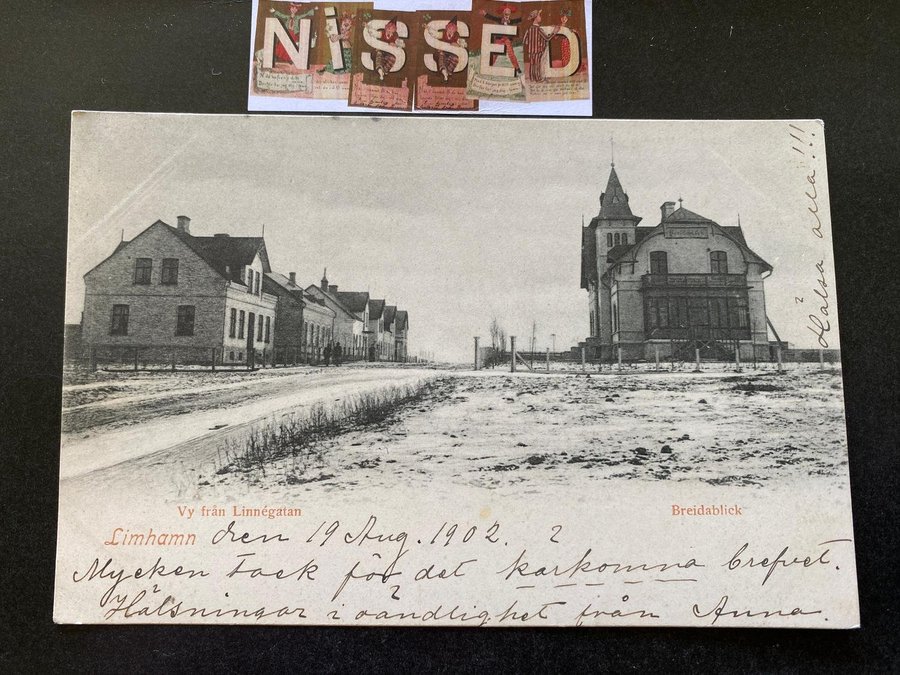 NiSSED
Hälsa alla!!!
Vy från Linnégatan
Breidablick
Limhamn den 19 Aug. 1902.
Mycken Tack för det kärkomna brefvet.
Hälsningar i oändlighet från Anna.